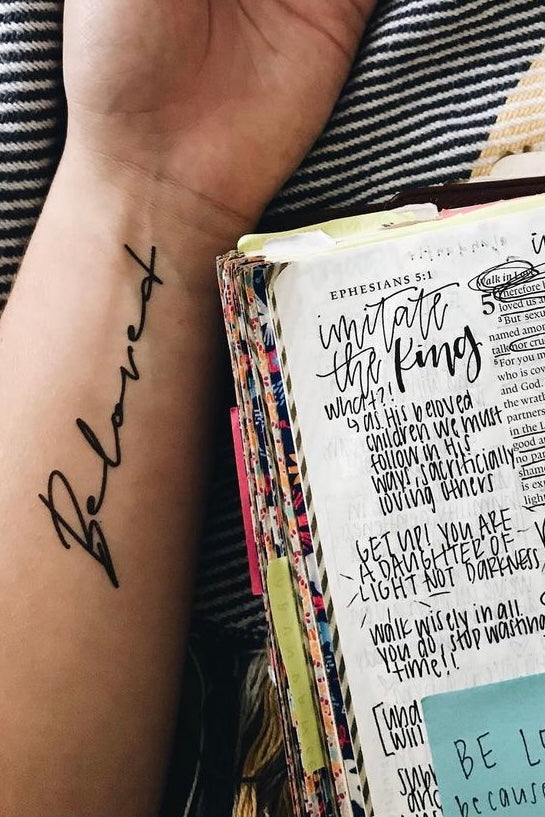 Beloved
EPHESIANS 5:1
imitate
the King
what?!
↳ as His beloved
children we must
follow in His
ways, sacrificially
loving others
GET UP! YOU ARE
A DAUGHTER OF
LIGHT NOT DARKNESS
walk wisely in all
you do, stop wasting
time!!
BE
because
Walk in Love
5 Therefore b
loved us a
But sexu
named amon
talk nor cru
For you m
who is cov
and God.
the wrath
partners
in the L
good a
no par
shame
is ex
light